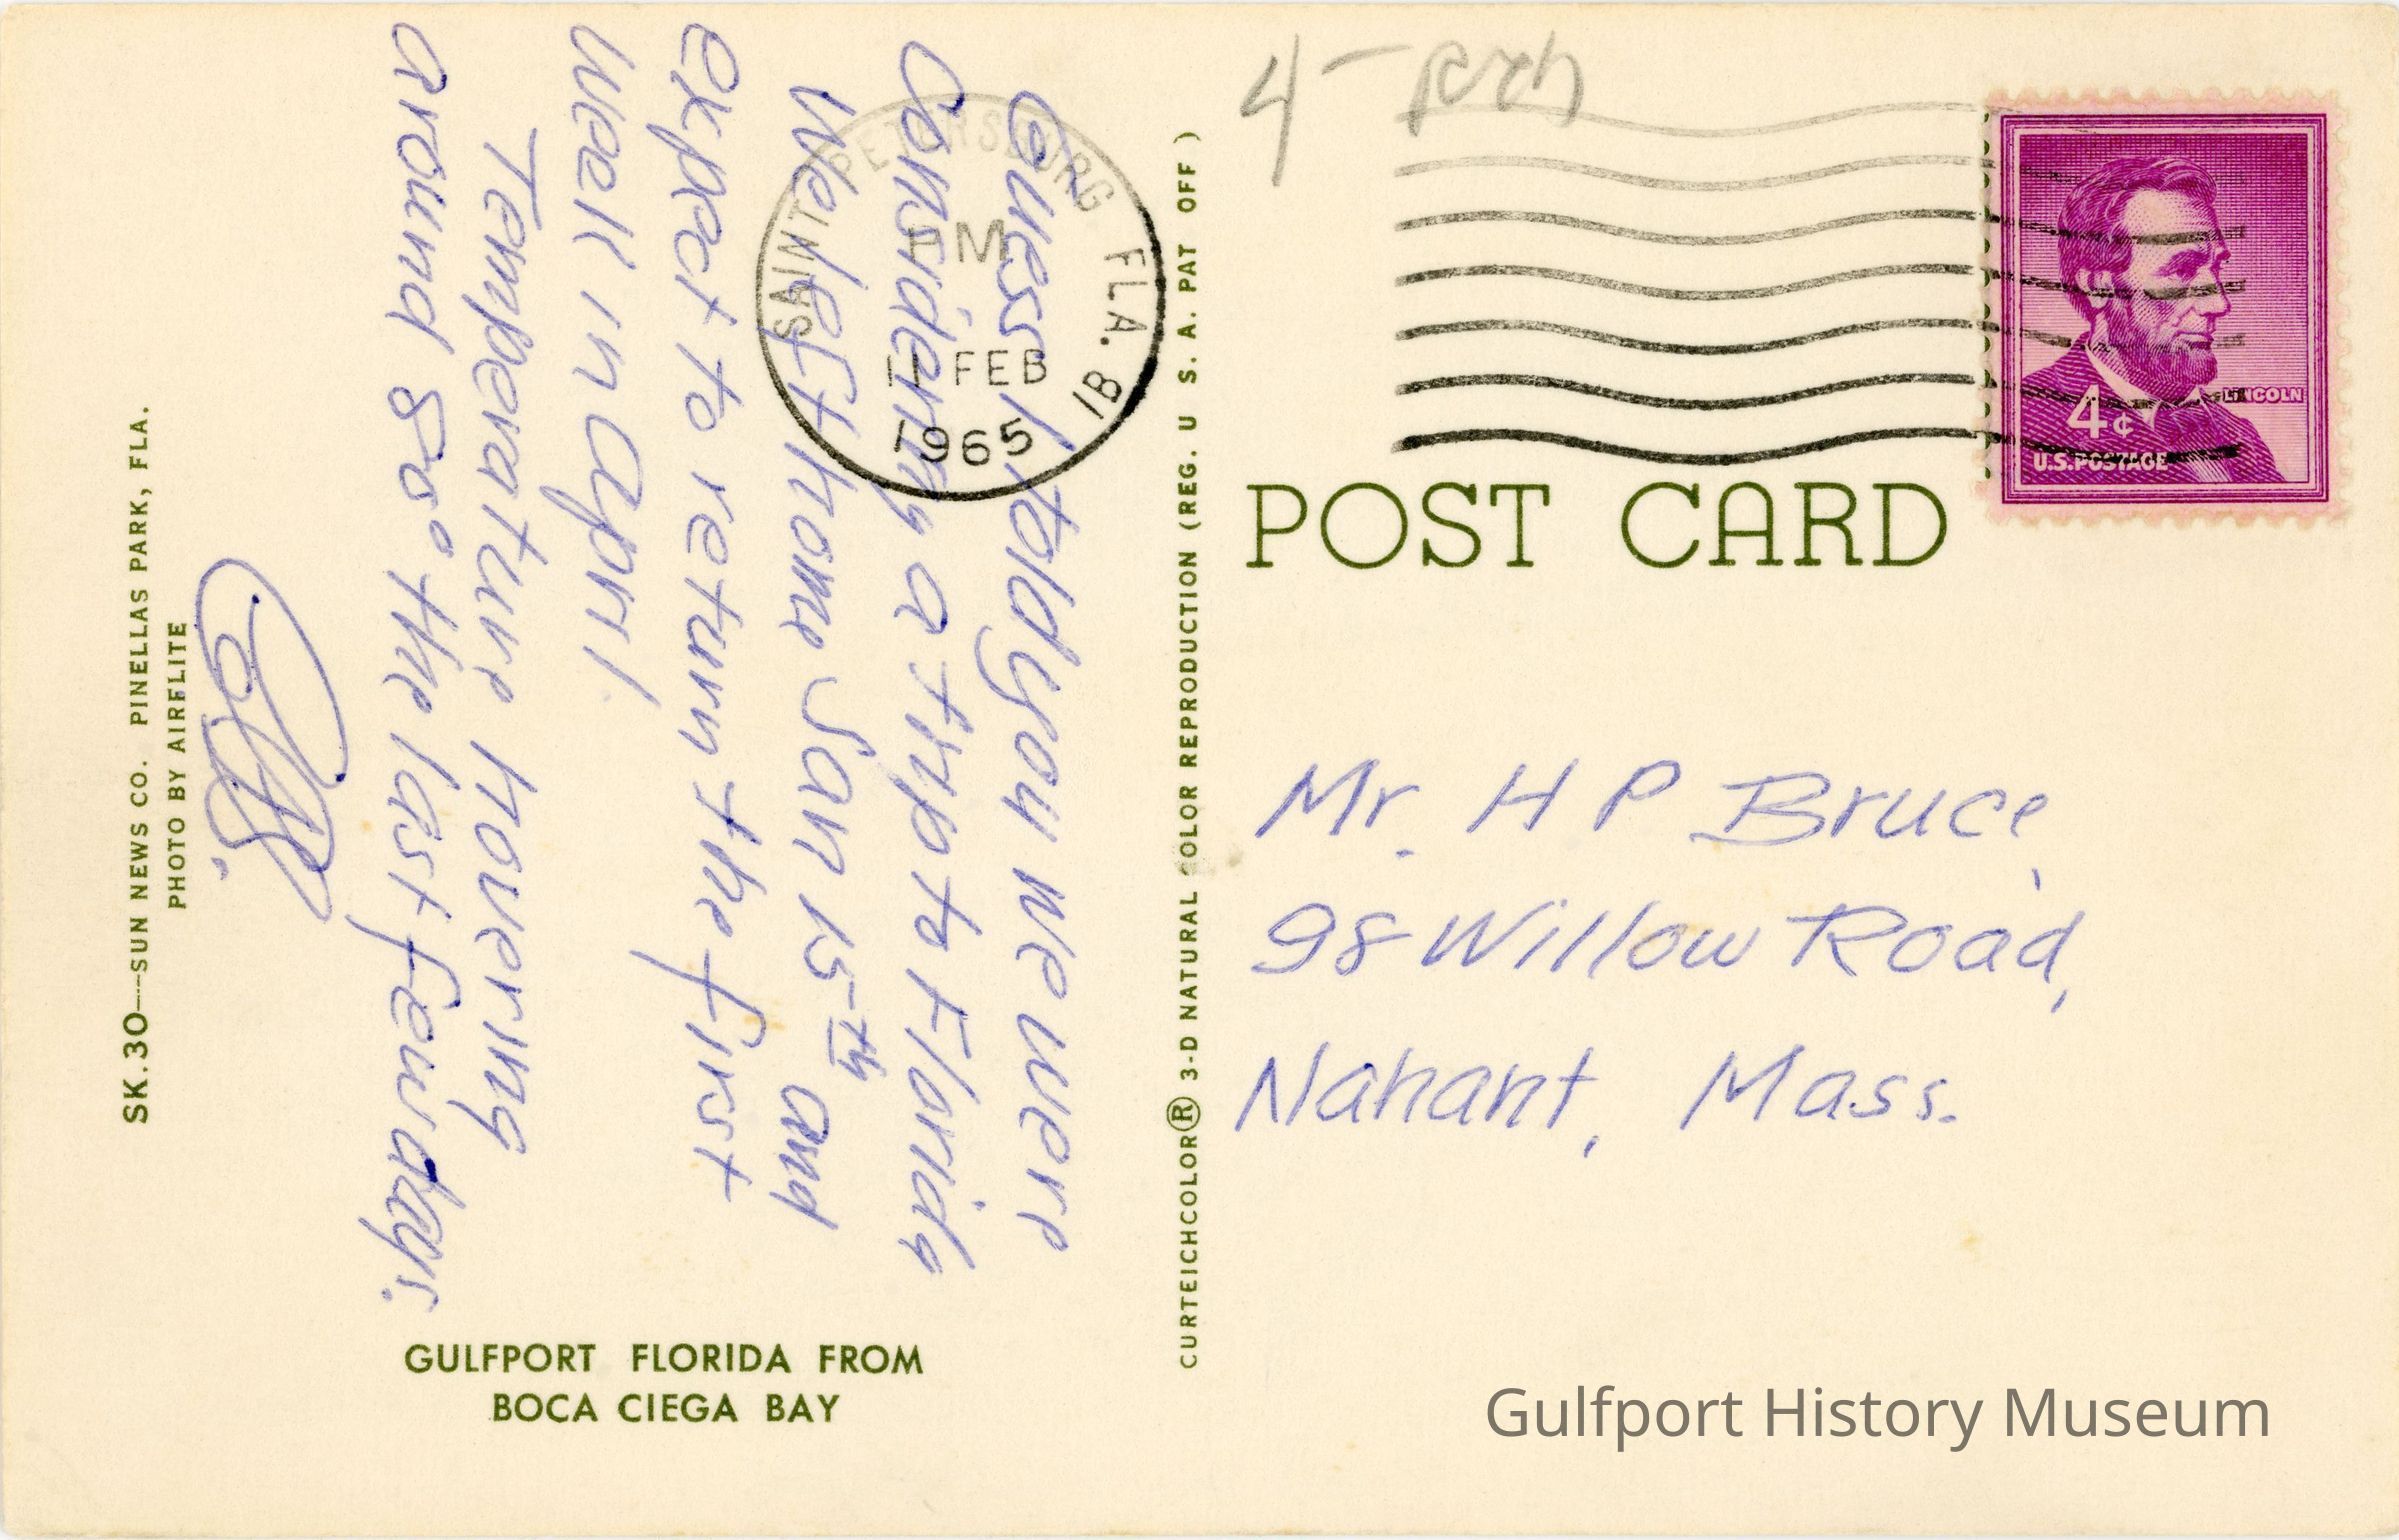 Guess I told you we were
Considering a trip to Florida
We left home Jan 15th and
expect to return the first
week in April.
Temperature hovering
around 80° the last few days.
SAINT PETERSBURG FLA.
PM
11 FEB
1965
1B
4
LINCOLN
4¢
U.S. POSTAGE
POST CARD
Mr. H P Bruce,
98 Willow Road,
Nahant, Mass.
CURTEICHCOLOR® 3-D NATURAL COLOR REPRODUCTION (REG. U S. A. PAT OFF)
SK.30—SUN NEWS CO. PINELLAS PARK, FLA.
PHOTO BY AIRFLITE
GULFPORT FLORIDA FROM
BOCA CIEGA BAY
Gulfport History Museum